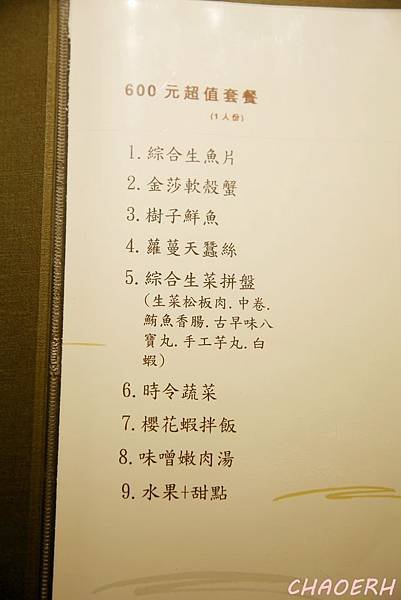 600 元超值套餐
(1人份)
1. 綜合生魚片
2. 金莎軟殼蟹
3. 樹子鮮魚
4. 蘿蔓天蠶絲
5. 綜合生菜拼盤
(生菜松板肉.中卷.
鮪魚香腸.古早味八
寶丸.手工芋丸.白
蝦)
6. 時令蔬菜
7. 櫻花蝦拌飯
8. 味噌嫩肉湯
9. 水果+甜點
CHAOERH